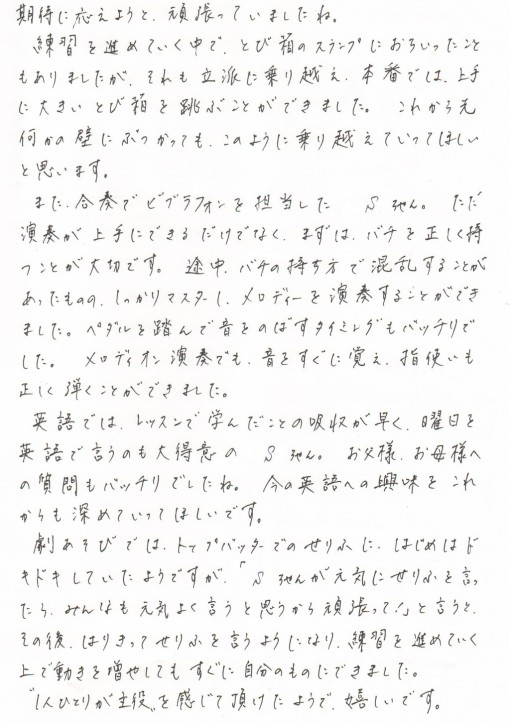 期待に応えようと、頑張っていましたね。
練習を進めていく中で、とび箱のスランプにおちいったこと
もありましたが、それも立派に乗り越え、本番では、上手
に大きいとび箱を跳ぶことができました。 これから先
何かの壁にぶつかっても、このように乗り越えていってほしい
と思います。
また、合奏でビブラフォンを担当した Sちゃん。 ただ
演奏が上手にできるだけでなく、まずは、バチを正しく持
つことが大切です。 途中、バチの持ち方で混乱することが
あったものの、しっかりマスターし、メロディーを演奏することができ
ました。ペダルを踏んで音をのばすタイミングもバッチリで
した。 メロディオン演奏でも、音をすぐに覚え、指使いも
正しく弾くことができました。
英語では、レッスンで学んだことの吸収が早く、曜日を
英語で言うのも大得意の Sちゃん。 お父様、お母様へ
の質問もバッチリでしたね。 今の英語への興味を これ
からも深めていってほしいです。
劇あそびでは、トップバッターでのせりふに、はじめはド
キドキしていたようですが、「Sちゃんが元気にせりふを言っ
たら、みんなも元気よく言うと思うから頑張って!」と言うと、
その後、はりきってせりふを言うようになり、練習を進めていく
上で動きを増やしてもすぐに自分のものにできました。
"1人ひとりが主役"を感じて頂けたようで、嬉しいです。